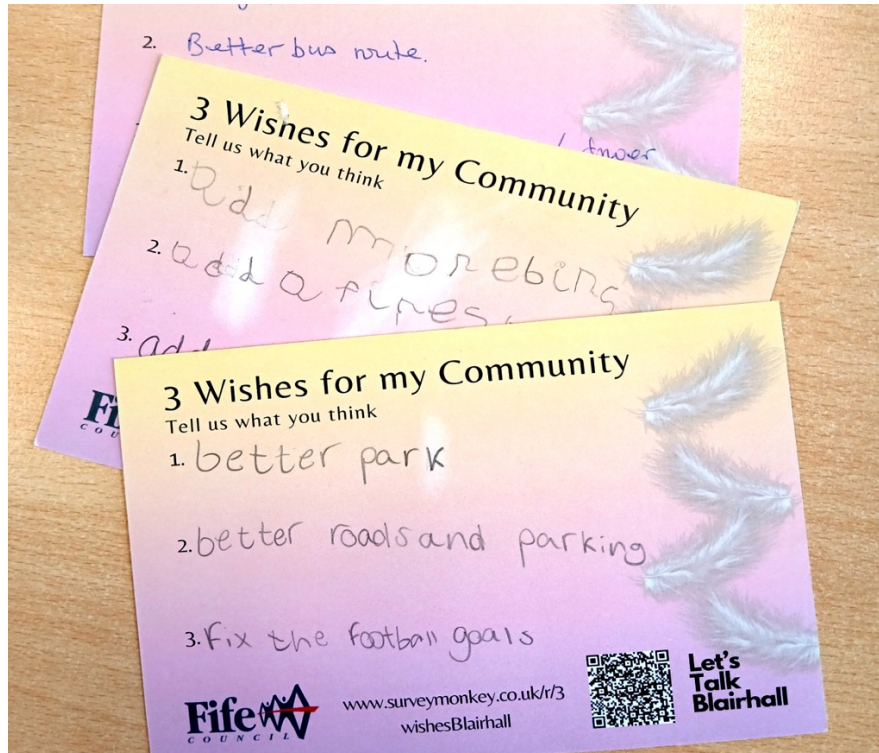 2. Better bus route.
3 Wishes for my Community
Tell us what you think
1. add more bins
2. add a
3. add
3 Wishes for my Community
Tell us what you think
1. better park
2. better roads and parking
3. Fix the football goals
Fife
COUNCIL
www.surveymonkey.co.uk/r/3
wishesBlairhall
Let's
Talk
Blairhall